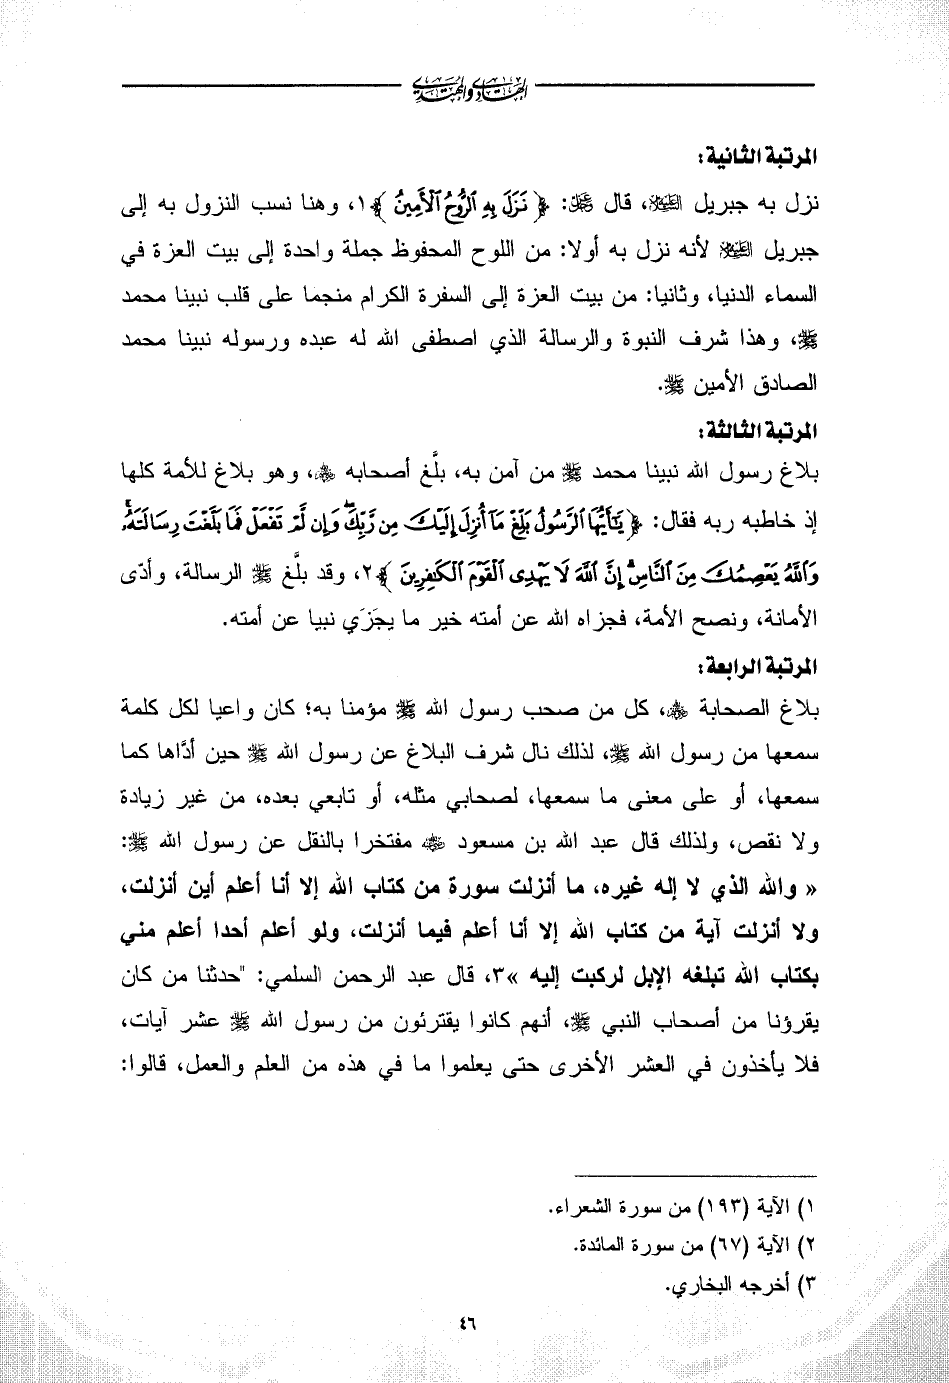 الهتدي والمهتدي
المرتبة الثانية:
نزل به جبريل عليه السلام، قال ﷺ: ﴿ نَزَلَ بِهِ ٱلرُّوحُ ٱلْأَمِينُ ﴾١، وهنا نسب النزول به إلى
جبريل عليه السلام لأنه نزل به أولا: من اللوح المحفوظ جملة واحدة إلى بيت العزة في
السماء الدنيا، وثانيا: من بيت العزة إلى السفرة الكرام منجما على قلب نبينا محمد
ﷺ، وهذا شرف النبوة والرسالة الذي اصطفى الله له عبده ورسوله نبينا محمد
الصادق الأمين ﷺ.
المرتبة الثالثة:
بلاغ رسول الله نبينا محمد ﷺ من آمن به، بلَّغ أصحابه ﷺ، وهو بلاغ للأمة كلها
إذ خاطبه ربه فقال: ﴿ يَٰٓأَيُّهَا ٱلرَّسُولُ بَلِّغْ مَآ أُنزِلَ إِلَيْكَ مِن رَّبِّكَ ۖ وَإِن لَّمْ تَفْعَلْ فَمَا بَلَّغْتَ رِسَالَتَهُۥ ۚ
وَٱللَّهُ يَعْصِمُكَ مِنَ ٱلنَّاسِ ۗ إِنَّ ٱللَّهَ لَا يَهْدِى ٱلْقَوْمَ ٱلْكَٰفِرِينَ ﴾٢، وقد بلَّغ ﷺ الرسالة، وأدّى
الأمانة، ونصح الأمة، فجزاه الله عن أمته خير ما يجَزَي نبيا عن أمته.
المرتبة الرابعة:
بلاغ الصحابة ﷺ، كل من صحب رسول الله ﷺ مؤمنا به؛ كان واعيا لكل كلمة
سمعها من رسول الله ﷺ، لذلك نال شرف البلاغ عن رسول الله ﷺ حين أدَّاها كما
سمعها، أو على معنى ما سمعها، لصحابي مثله، أو تابعي بعده، من غير زيادة
ولا نقص، ولذلك قال عبد الله بن مسعود رضي الله عنه مفتخرا بالنقل عن رسول الله ﷺ:
« والله الذي لا إله غيره، ما أنزلت سورة من كتاب الله إلا أنا أعلم أين أنزلت،
ولا أنزلت آية من كتاب الله إلا أنا أعلم فيما أنزلت، ولو أعلم أحدا أعلم مني
بكتاب الله تبلغه الإبل لركبت إليه »٣، قال عبد الرحمن السلمي: "حدثنا من كان
يقرؤنا من أصحاب النبي ﷺ، أنهم كانوا يقترئون من رسول الله ﷺ عشر آيات،
فلا يأخذون في العشر الأخرى حتى يعلموا ما في هذه من العلم والعمل، قالوا:
١) الآية (١٩٣) من سورة الشعراء.
٢) الآية (٦٧) من سورة المائدة.
٣) أخرجه البخاري.
٤٦